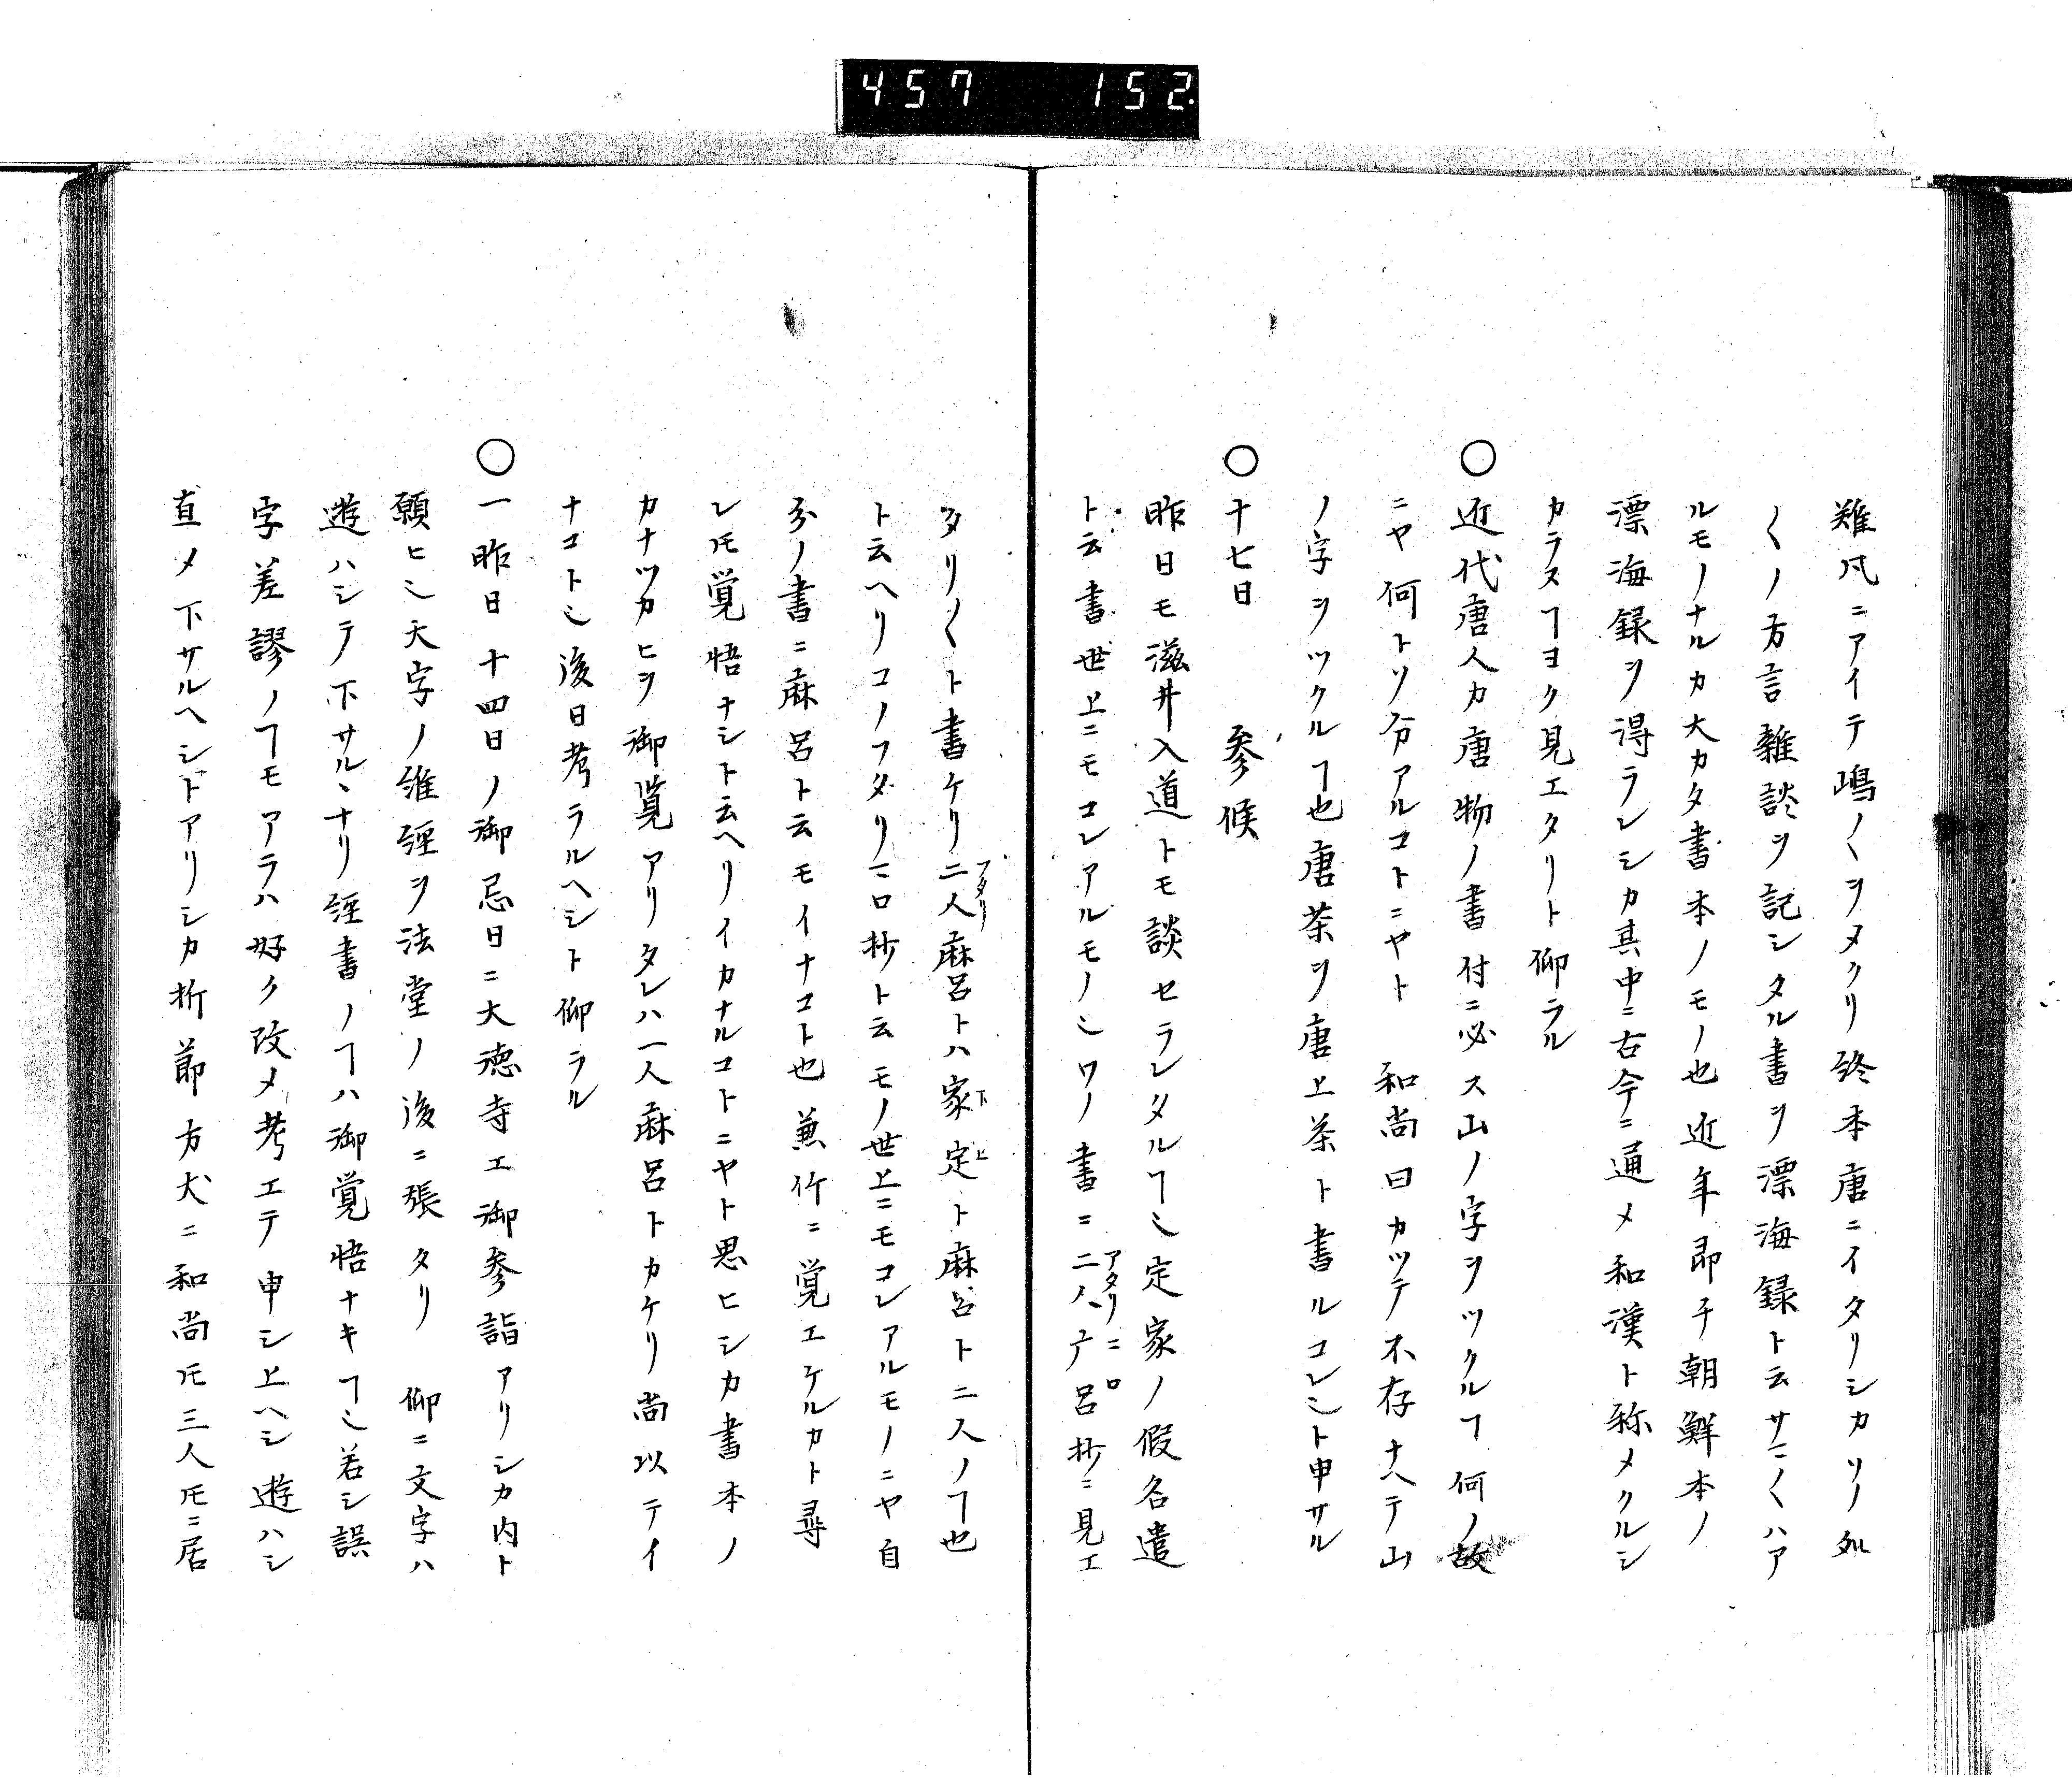 457 152.
難凡ニアイテ嶋〳〵ヲヌクリ終本唐ニイタリシカソノ処
〳〵ノ方言雑談ヲ記シタル書ヲ漂海録ト云サニ〳〵ハア
ルモノナルカ大カタ書本ノモノ也近年即チ朝鮮本ノ
漂海録ヲ得ラレシカ其中ニ古今ニ通メ和漢ト称メクルシ
カラヌヿヨク見エタリト仰ラル
○近代唐人カ唐物ノ書付ニ必ス山ノ字ヲツクルヿ何ノ故
ニヤ何トソ分アルコトニヤト　和尚曰カツテ不存ナヘテ山
ノ字ヲツクルヿ也唐茶ヲ唐上茶ト書ルコレシト申サル
○十七日　　参候
昨日モ滋井入道トモ談セラレタルヿシ定家ノ假名遣
ト云書世上ニモコレアルモノシワノ書ニ二人アタリニロ呂抄ニ見エ
タリ〳〵ト書ケリ二人フタリ麻呂トハ家下定上ト麻呂ト二人ノヿ也
ト云ヘリコノフタリニロ抄ト云モノ世上ニモコレアルモノニヤ自
分ノ書ニ麻呂ト云モイナコト也兼竹ニ覚エケルカト尋
レ𪜈覚悟ナシト云ヘリイカナルコトニヤト思ヒシカ書本ノ
カナツカヒヲ御覧アリタレハ一人麻呂トカケリ尚以テイ
ナコトシ後日考ラルヘシト仰ラル
○一昨日十四日ノ御忌日ニ大徳寺エ御参詣アリシカ内ト
願ヒシ大字ノ維經ヲ法堂ノ後ニ張タリ　仰ニ文字ハ
遊ハシテ下サルヽナリ經書ノヿハ御覚悟ナキヿシ若シ誤
字差謬ノヿモアラハ好ク改メ考エテ申シ上ヘシ遊ハシ
直メ下サルヘシトアリシカ折節方丈ニ和尚𪜈三人𪜈ニ居